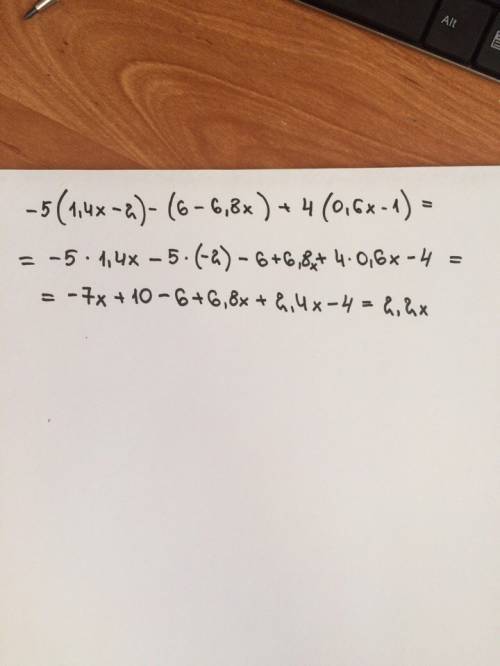 Alt
-5(1,4x-2)-(6-6,8x)+4(0,6x-1)=
=-5·1,4x-5·(-2)-6+6,8x+4·0,6x-4=
=-7x+10-6+6,8x+2,4x-4=2,2x